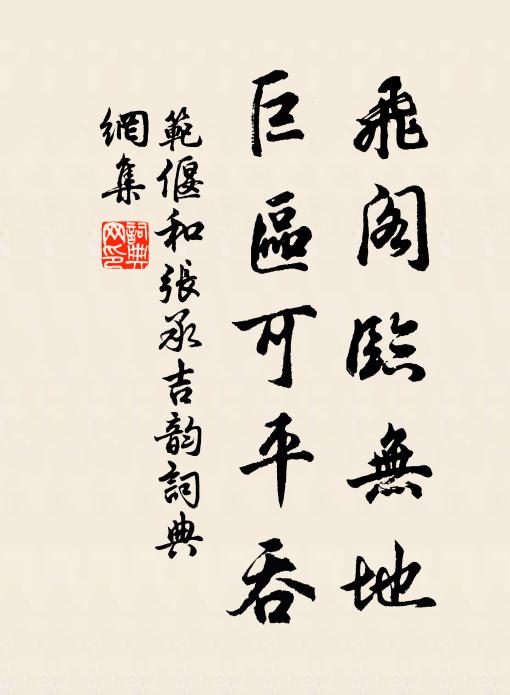 飛閣臨無地
巨區可平吞
範偃和張承吉韵詞典
網集
詞典
网印